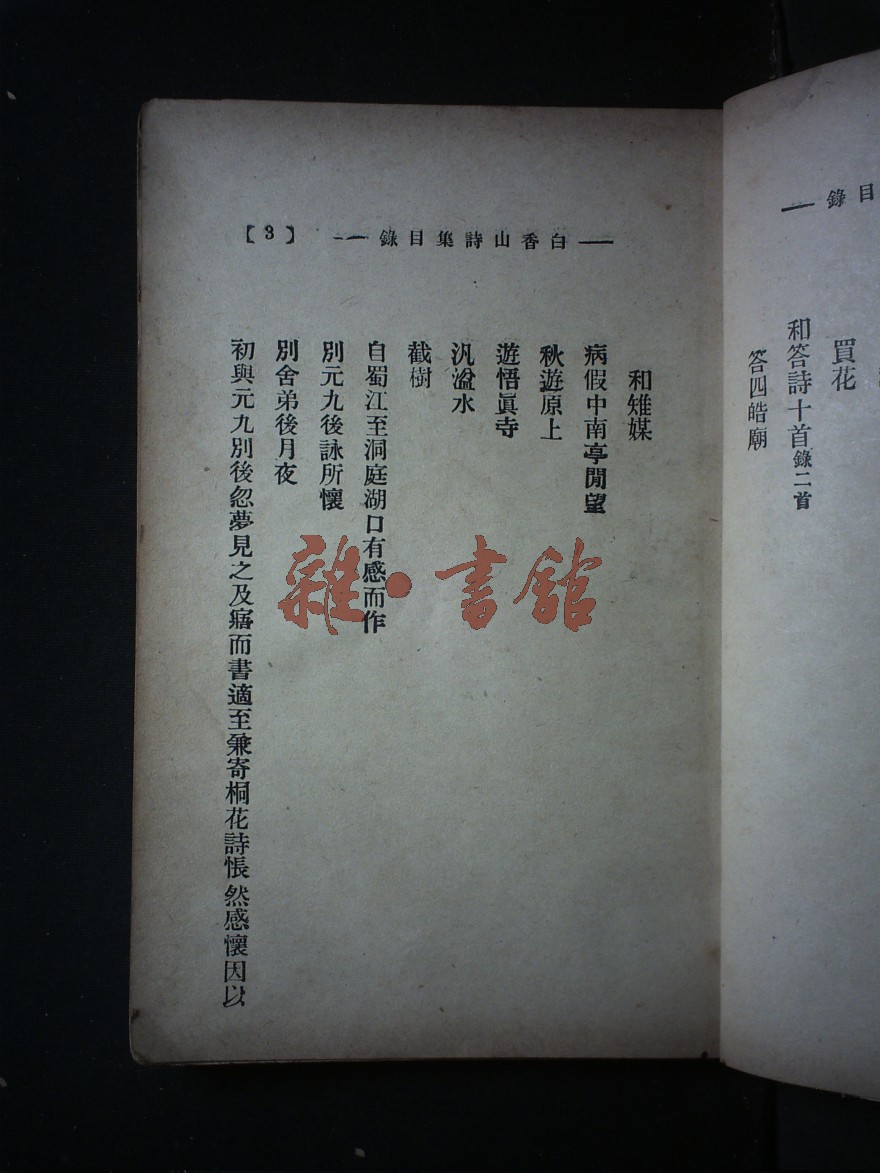 目錄
買花
和答詩十首錄二首
答四皓廟
白香山詩集目錄
【3】
和雉媒
病假中南亭閒望
秋遊原上
遊悟眞寺
汎湓水
截樹
自蜀江至洞庭湖口有感而作
別元九後詠所懷
別舍弟後月夜
初與元九別後忽夢見之及寤而書適至兼寄桐花詩悵然感懷因以
雜·書館